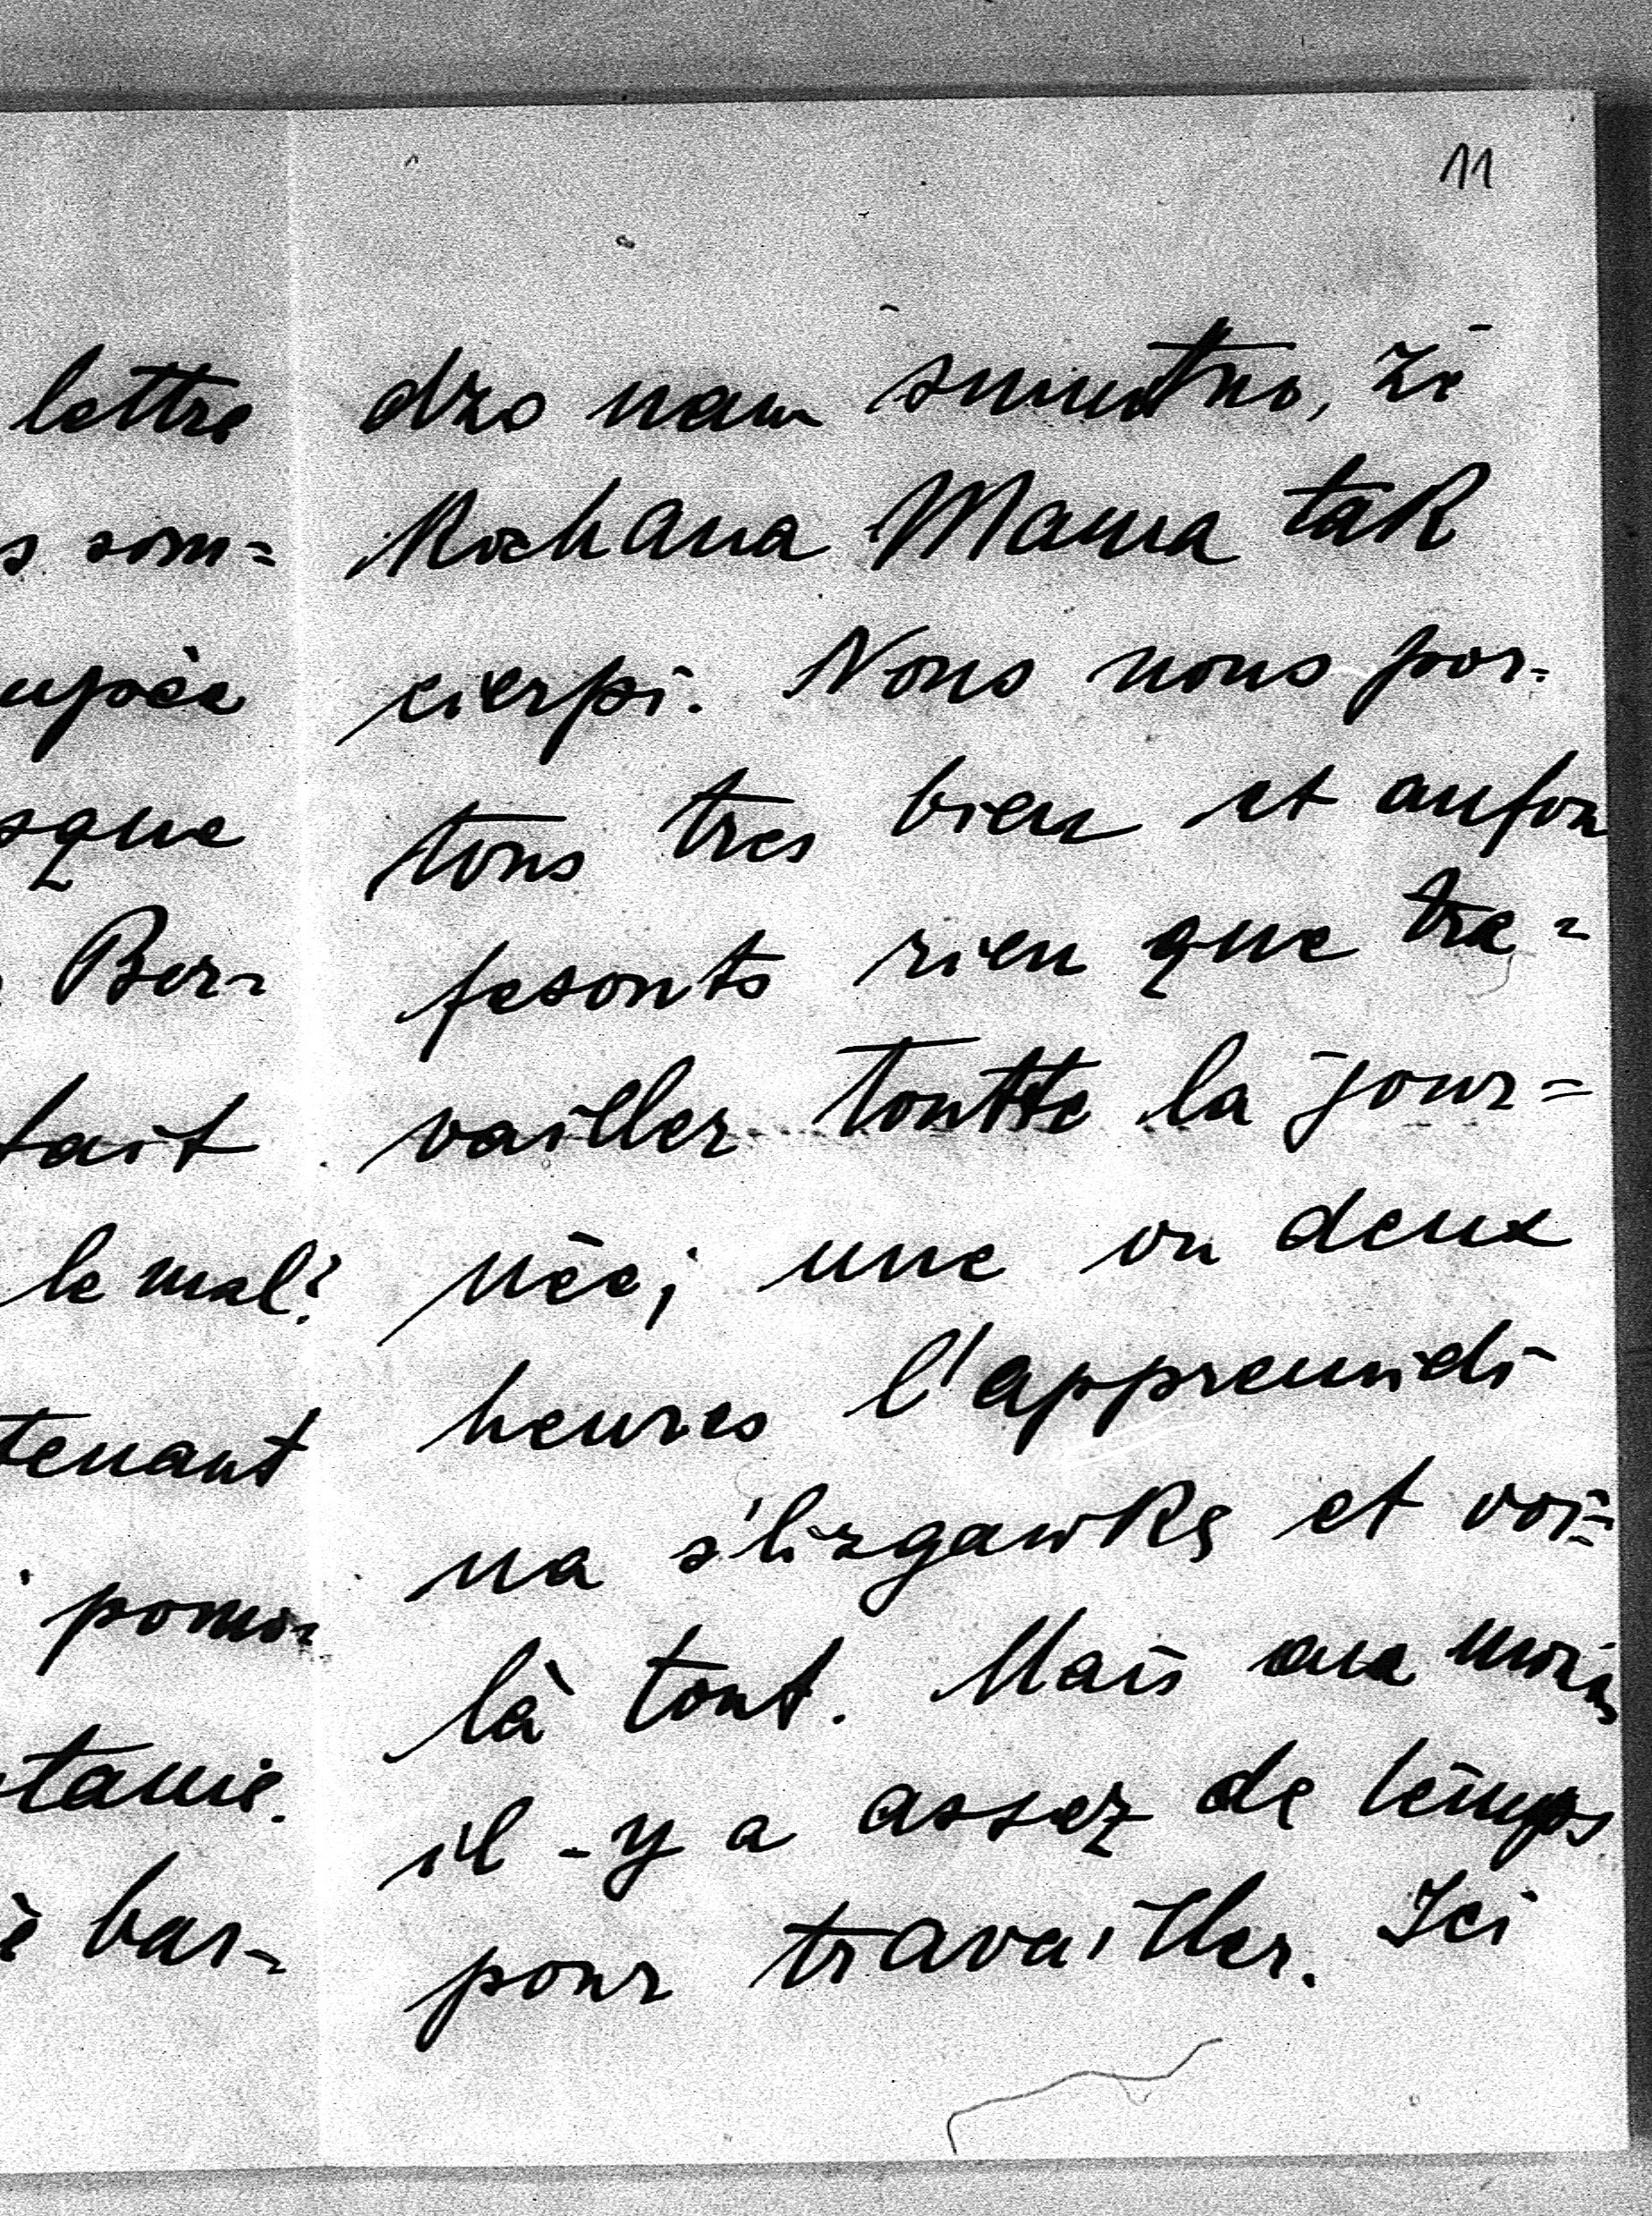 11
lettre
s som=
upèe
sque
Ber-
tait
le mal?
tenant
pomo-
tanie.
è bar-
dzo nam smutno, że
Kochana Mama tak
cierpi. Nous nous por-
tons tres bien et aufon
fesonts rien que tra-
vailler toutte la jour=
nèe; une ou deux
heures l'appremidi
na ślizgawkę et voi=
là tout. Mais au moins
il-y a assez de temps
pour travailler. Ici